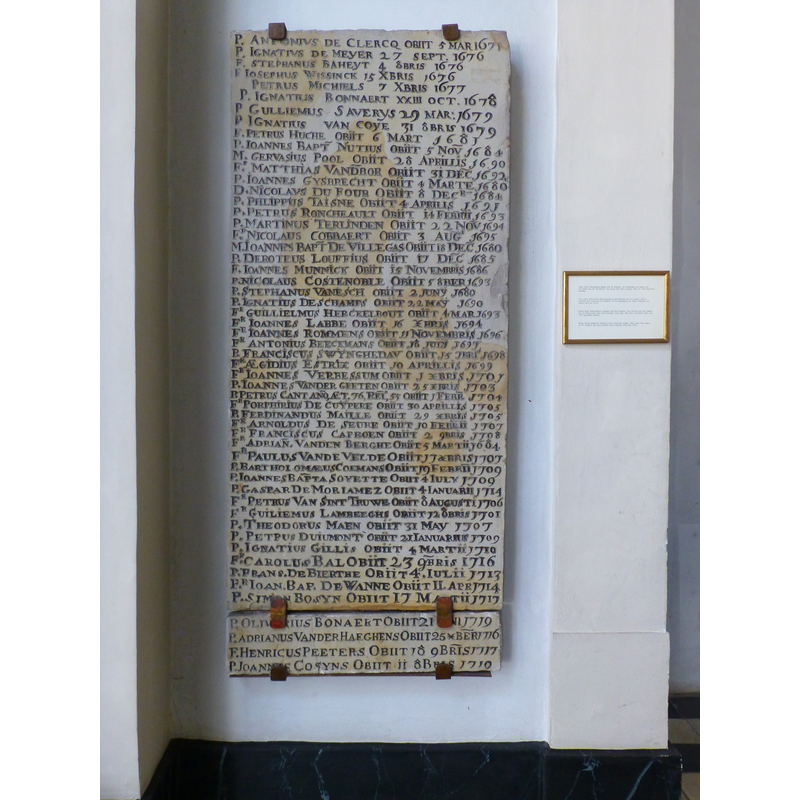 P. ANTONIUS DE CLERCQ OBIIT 5 MAR 1671
P. IGNATIUS DE MEYER 27 SEPT. 1676
F. STEPHANUS BAHEYT 4 8BRIS 1676
F IOSEPHUS WISSINCK 15 XBRIS 1676
PETRUS MICHIELS 7 XBRIS 1677
P. IGNATIUS BONNAERT XXIII OCT. 1678
P GULLIEMUS SAVERYS 29 MAR. 1679
P IGNATIUS VAN COYE 31 8BRIS 1679
F. PETRUS HUCHE OBIIT 6 MART 1681
P. IOANNES BAPT NUTIUS OBIIT 5 NOV 1684
M. GERVASIUS POOL OBIIT 28 APRILLIS 1690
FR MATTHIAS VANDBOR OBIIT 31 DEC 1692
P. IOANNES GYSBRECHT OBIIT 4 MARTE 1680
D. NICOLAVS DU FOUR OBIIT 8 DECR 1684
P. PHLIPPUS TAISNE OBIIT 4 APRILIS 1691
P. PETRUS RONCHEAULT OBIIT 14 FEBRII 1693
P. MARTINUS TERLINDEN OBIIT 22 NOV 1694
FR NICOLAUS COBBAERT OBIIT 3 AUG 1695
M. IOANNES BAPT DE VILLEGAS OBIIT 18 DEC 1680
P. DEROTEUS LOUFFIUS OBIIT 17 DEC 1685
F. IOANNES MUNNICK OBIIT 15 NOVEMBRIS 1686
P. NICOLAUS COSTENOBLE OBIIT 5 8BER 1693
P. STEPHANUS VANESCH OBIIT 2 JUNY 1680
P. IGNATIUS DESCHAMPS OBIIT 22 MAY 1690
FR GUILLIELMUS HERCKELBOUT OBIIT 4 MAR 1693
FR IOANNES LABBE OBIIT 16 XBRIS 1694
FR IOANNES ROMMENS OBIIT 11 NOVEMBRIS 1696
FR ANTONIUS BEECKMANS OBIIT 18 JULY 1697
P. FRANCISCUS SWYNGHEDAV OBIIT 15 7BRI 1698
FR ÆGIDIUS ESTRIX OBIIT 10 APRILLIS 1699
FR IOANNES VERBESSUM OBIIT 1 XBRIS 1701
P. IOANNES VANDER GEETEN OBIIT 25 XBRIS 1703
P. PETRUS CANT ANO ÆT. 76 REL 57 OBIIT 1 FEBR 1704
FR PORPHIRIUS DE CUYPERE OBIIT 30 APRILLIS 1705
P. FERDINANDUS MAILLE OBIIT 29 XBRIS 1705
FR ARNOLDUS DE SEURE OBIIT 10 FEBRII 1707
FR FRANCISCUS CAPROEN OBIIT 2 9BRIS 1708
FR ADRIAN. VANDEN BERGHE OBIIT 5 MARTII 1684
FR PAULUS VANDE VELDE OBIIT 17 XBRIS 1707
P. BARTHOLOMÆUS COEMANS OBIIT 19 FEBRII 1709
P. IOANNES BAPTA SOVETTE OBIIT 4 IULY 1709
P. GASPAR DE MORIAMEZ OBIIT 4 IANUARII 1714
FR PETRUS VAN SINT TRUWE OBIIT 8 AUGUSTI 1706
FR GUILIEMUS LAMBEEGHS OBIIT 12 8BRIS 1701
P. THEODORUS MAEN OBIIT 31 MAY 1707
P. PETPUS DUIUMONT OBIIT 21 IANUARIUS 1709
P. IGNATIUS GILLIS OBIIT 4 MARTII 1710
FR CAROLUS BAL OBIIT 23 9BRIS 1716
P. FRANS. DE BIERTHE OBIIT 4. IULII 1713
FR IOAN. BAP. DE WANNE OBIIT 1 APR 1714
P. SIMON BOSYN OBIIT 17 MARTII 1717
P. OLIVERIUS BONAERT OBIIT 21 1719
P. ADRIANUS VANDER HAEGHENS OBIIT 25 XBER 1716
F. HENRICUS PEETERS OBIIT 18 9BRIS 1717
P. IOANNES COSYNS OBIIT 11 8BRIS 1719